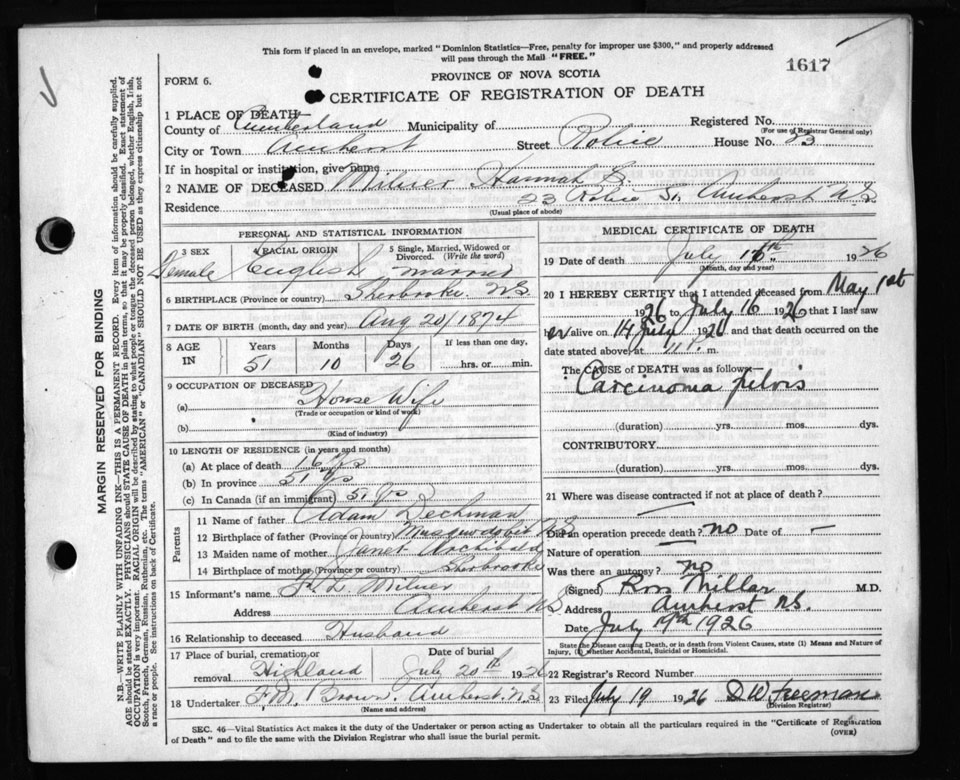 This form if placed in an envelope, marked "Dominion Statistics—Free, penalty for improper use $300," and properly addressed
will pass through the Mail "FREE."
1617
FORM 6.
PROVINCE OF NOVA SCOTIA
CERTIFICATE OF REGISTRATION OF DEATH
1 PLACE OF DEATH
Registered No.
(For use of Registrar General only)
County of Cumberland Municipality of
City or Town Amherst Street Robie House No. 23
If in hospital or institution, give name
2 NAME OF DECEASED Milner Hannah B.
Residence 23 Robie St. Amherst N.S.
(Usual place of abode)
PERSONAL AND STATISTICAL INFORMATION
3 SEX 4 RACIAL ORIGIN 5 Single, Married, Widowed or Divorced. (Write the word)
Female English married
6 BIRTHPLACE (Province or country) Sherbrooke N.S.
7 DATE OF BIRTH (month, day and year) Aug 20/1874
8 AGE IN Years Months Days If less than one day,
51 10 26 hrs. or min.
9 OCCUPATION OF DECEASED
(a) House Wife
(Trade or occupation or kind of work)
(b)
(Kind of industry)
10 LENGTH OF RESIDENCE (in years and months)
(a) At place of death 16 yrs
(b) In province 51 yrs
(c) In Canada (if an immigrant) 51 yrs
Parents
11 Name of father Adam Dechman
12 Birthplace of father (Province or country) Musquodobit N.S.
13 Maiden name of mother Janet Archibald
14 Birthplace of mother (Province or country) Sherbrooke
15 Informant's name F. L. Milner
Address Amherst N.S.
16 Relationship to deceased Husband
17 Place of burial, cremation or removal Date of burial
Highland July 20th 1926
18 Undertaker F.M. Brown, Amherst. N.S.
(Name and address)
MEDICAL CERTIFICATE OF DEATH
19 Date of death July 16th 1926
(Month, day and year)
20 I HEREBY CERTIFY that I attended deceased from May 1st
1926 to July 16 1926 that I last saw
her alive on 14 July 1926 and that death occurred on the
date stated above, at 11 P. m.
The CAUSE OF DEATH was as follows—
Carcinoma pelvis
(duration) yrs. mos. dys.
CONTRIBUTORY.
(duration) yrs. mos. dys.
21 Where was disease contracted if not at place of death? —
Did an operation precede death? no Date of —
Nature of operation —
Was there an autopsy? no
(Signed) Ross Millar M.D.
Address Amherst N.S.
Date July 19th 1926
State the Disease causing Death, or in death from Violent Causes, state (1) Means and Nature of
Injury, (2) whether Accidental, Suicidal or Homicidal.
22 Registrar's Record Number
23 Filed July 19 1926 D W Freeman
(Division Registrar)
SEC. 46—Vital Statistics Act makes it the duty of the Undertaker or person acting as Undertaker to obtain all the particulars required in the "Certificate of Registration
of Death" and to file the same with the Division Registrar who shall issue the burial permit.
(OVER)
MARGIN RESERVED FOR BINDING
N.B.—WRITE PLAINLY WITH UNFADING INK—THIS IS A PERMANENT RECORD. Every item of information should be carefully supplied.
AGE should be stated EXACTLY. PHYSICIANS should STATE CAUSE OF DEATH in plain terms, so that it may be properly classified. Exact statement of
OCCUPATION is very important. RACIAL ORIGIN will be described by stating to what people or tongue the deceased person belonged, whether English, Irish,
Scotch, French, German, Russian, Ruthenian, etc. The terms "AMERICAN" or "CANADIAN" SHOULD NOT BE USED as they express citizenship but not
a race or people. See instructions on back of Certificate.